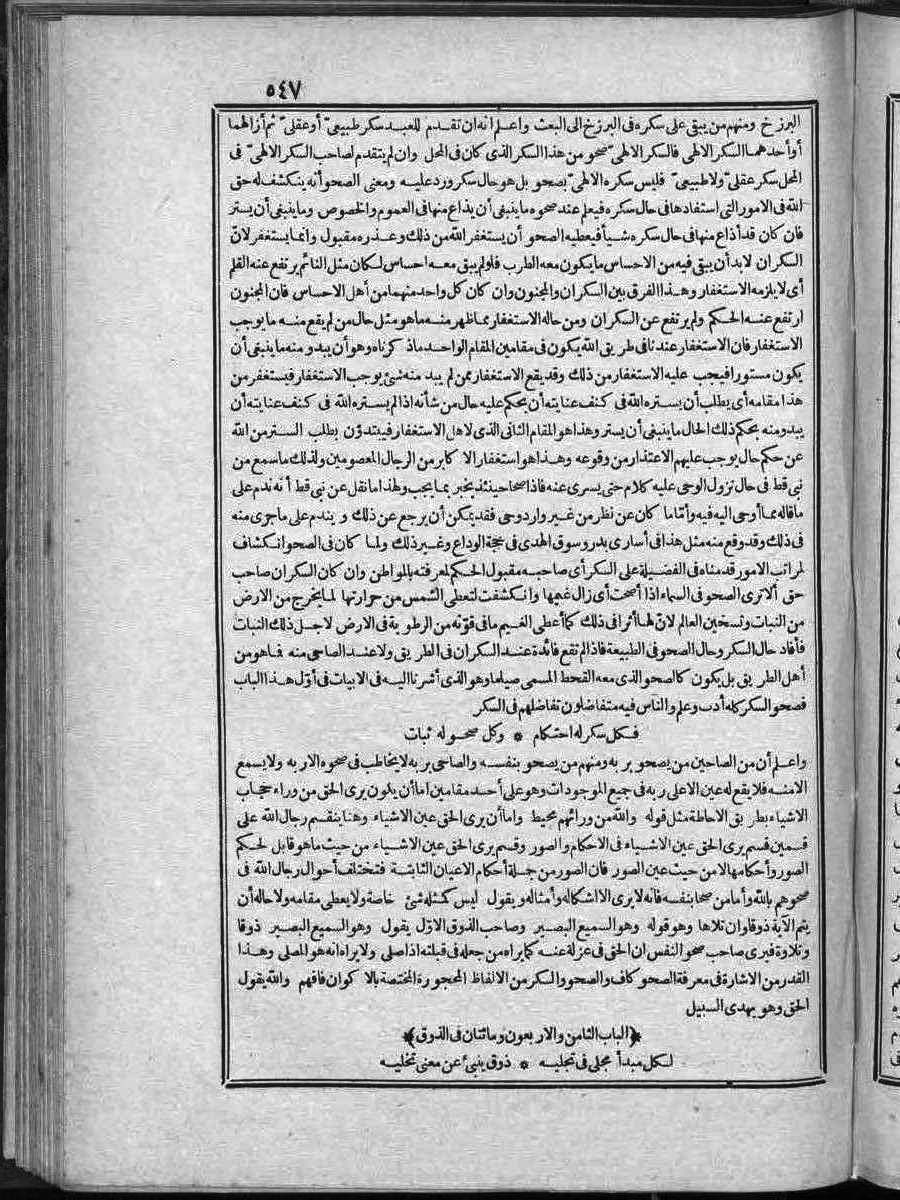 ٥٤٧
البرزخ ومنهم من يبقى على سكره فى البرزخ الى البعث واعلم انه ان تقدم للعبد سكر طبيعىّ أو عقلىّ ثم أزالهما
أو أحدهما السكر الالهى فالسكر الالهىّ صحو من هذا السكر الذى كان فى المحل وان لم يتقدم لصاحب السكر الالهىّ فى
المحل سكر عقلىّ ولا طبيعىّ فليس سكره الالهىّ بصحو بل هو حال سكر ورد عليه ومعنى الصحو أنه ينكشف له حق
الله فى الامور التى استفادها فى حال سكره فيعلم عند صحوه ما ينبغى أن يذاع منها فى العموم والخصوص وما ينبغى أن يستر
فان كان قد أذاع منها فى حال سكره شيأ فيعطيه الصحو أن يستغفر الله من ذلك وعذره مقبول وانما يستغفر لانّ
السكران لا بد أن يبقى فيه من الاحساس ما يكون معه الطرب فلو لم يبق معه احساس لكان مثل النائم يرتفع عنه القلم
أى لا يلزمه الاستغفار وهذا الفرق بين السكران والمجنون وان كان كل واحد منهما من أهل الاحساس فان المجنون
ارتفع عنه الحكم ولم يرتفع عن السكران ومن حاله الاستغفار مما ظهر منه ما هو مثل حال من لم يقع منه ما يوجب
الاستغفار فان الاستغفار عندنا فى طريق الله يكون فى مقامين المقام الواحد ماذكرناه وهو أن يبدو منه ما ينبغى أن
يكون مستورا فيجب عليه الاستغفار من ذلك وقد يقع الاستغفار ممن لم يبد منه شئ يوجب الاستغفار فيستغفر من
هذا مقامه أى يطلب أن يستره الله فى كنف عنايته أن يحكم عليه حال من شأنه اذا لم يستره الله فى كنف عنايته أن
يبدو منه بحكم ذلك الحال ما ينبغى أن يستر وهذا هو المقام الثانى الذى لاهل الاستغفار فيبتدؤن بطلب الستر من الله
عن حكم حال يوجب عليهم الاعتذار من وقوعه وهذا هو استغفار الاكابر من الرجال المعصومين ولذلك ما سمع من
نبى قط فى حال نزول الوحى عليه كلام حتى يسرى عنه فاذا صحا حينئذ يخبر بما يجب ولهذا ما نقل عن نبى قط أنه ندم على
ما قاله مما أوحى اليه فيه وأمّا ما كان عن نظر من غير وارد وحى فقد يمكن أن يرجع عن ذلك ويندم على ما جرى منه
فى ذلك وقد وقع منه مثل هذا فى أسارى بدر وسوق الهدى فى حجة الوداع وغير ذلك ولما كان فى الصحو انكشاف
لمراتب الامور قدمناه فى الفضيلة على السكر أى صاحبه مقبول الحكم لمعرفته بالمواطن وان كان السكران صاحب
حق ألا ترى الصحو فى السماء اذا أصحت أى زال غيمها وانكشفت لتعطى الشمس من حرارتها لما يخرج من الارض
من النبات وتسخين العالم لانّ لها أثرا فى ذلك كما أعطى الغيم ما فى قوّته من الرطوبة فى الارض لاجل ذلك النبات
فأفاد حال السكر وحال الصحو فى الطبيعة فاذا لم تقع فائدة عند السكران فى الطريق ولا عند الصاحى منه فما هو من
أهل الطريق بل يكون كالصحو الذى معه القحط المسمى صيلما وهو الذى أشرنا اليه فى الابيات فى أوّل هذا الباب
فصحو السكر كله أدب وعلم والناس فيه متفاضلون تفاضلهم فى السكر
فكل سكر له احتكام * وكل صحو له ثبات
واعلم أن من الصاحين من يصحو بربه ومنهم من يصحو بنفسه والصاحى بربه لا يخاطب فى صحوه الا ربه ولا يسمع
الا منه فلا يقع له عين الا على ربه فى جميع الموجودات وهو على أحد مقامين اما أن يكون يرى الحق من وراء حجاب
الاشياء بطريق الاحاطة مثل قوله والله من ورائهم محيط واما أن يرى الحق عين الاشياء وهنا ينقسم رجال الله على
قسمين قسم يرى الحق عين الاشياء فى الاحكام والصور وقسم يرى الحق عين الاشياء من حيث ما هو قابل لحكم
الصور وأحكامها لا من حيث عين الصور فان الصور من جملة أحكام الاعيان الثابتة فتختلف أحوال رجال الله فى
صحوهم بالله وأما من صحا بنفسه فانه لا يرى الا اشكاله وأمثاله ويقول ليس كمثله شئ خاصة ولا يعطى مقامه ولا حاله أن
يتم الآية ذوقا وان تلاها وهو قوله وهو السميع البصير وصاحب الذوق الاوّل يقول وهو السميع البصير ذوقا
وتلاوة فيرى صاحب صحو النفس ان الحق فى عزلة عنه كما يراه من جعله فى قبلته اذا صلى ولا يراه انه هو المصلى وهذا
القدر من الاشارة فى معرفة الصحو كاف والصحو والسكر من الالفاظ المحجورة المختصة بالاكوان فافهم والله يقول
الحق وهو يهدى السبيل
﴿الباب الثامن والاربعون ومائتان فى الذوق﴾
لكل مبدأ مجلى فى تجليه * ذوق ينبئ عن معنى تحليه